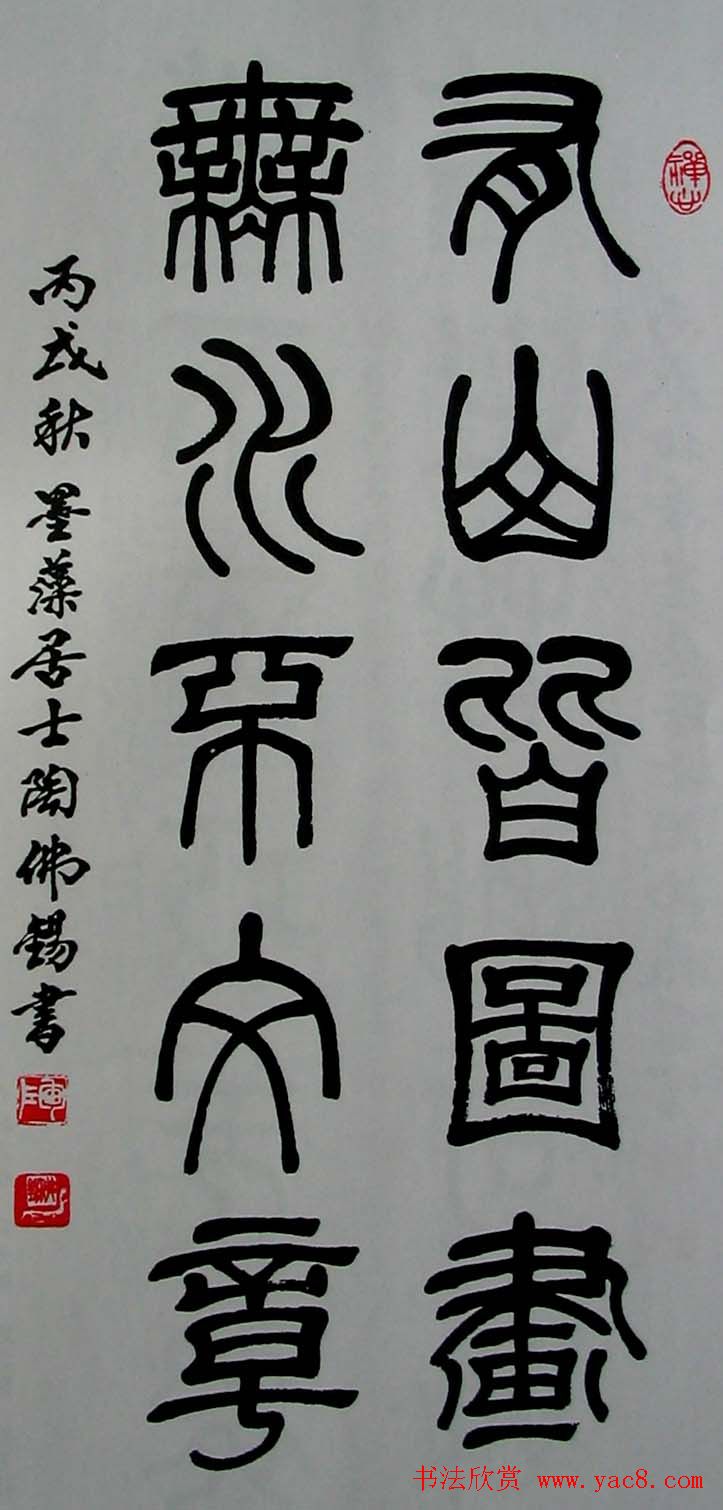 有山皆圖畫
無水不文章
丙戌秋 墨藻居士陶佛錫書
书法欣赏 www.yac8.com